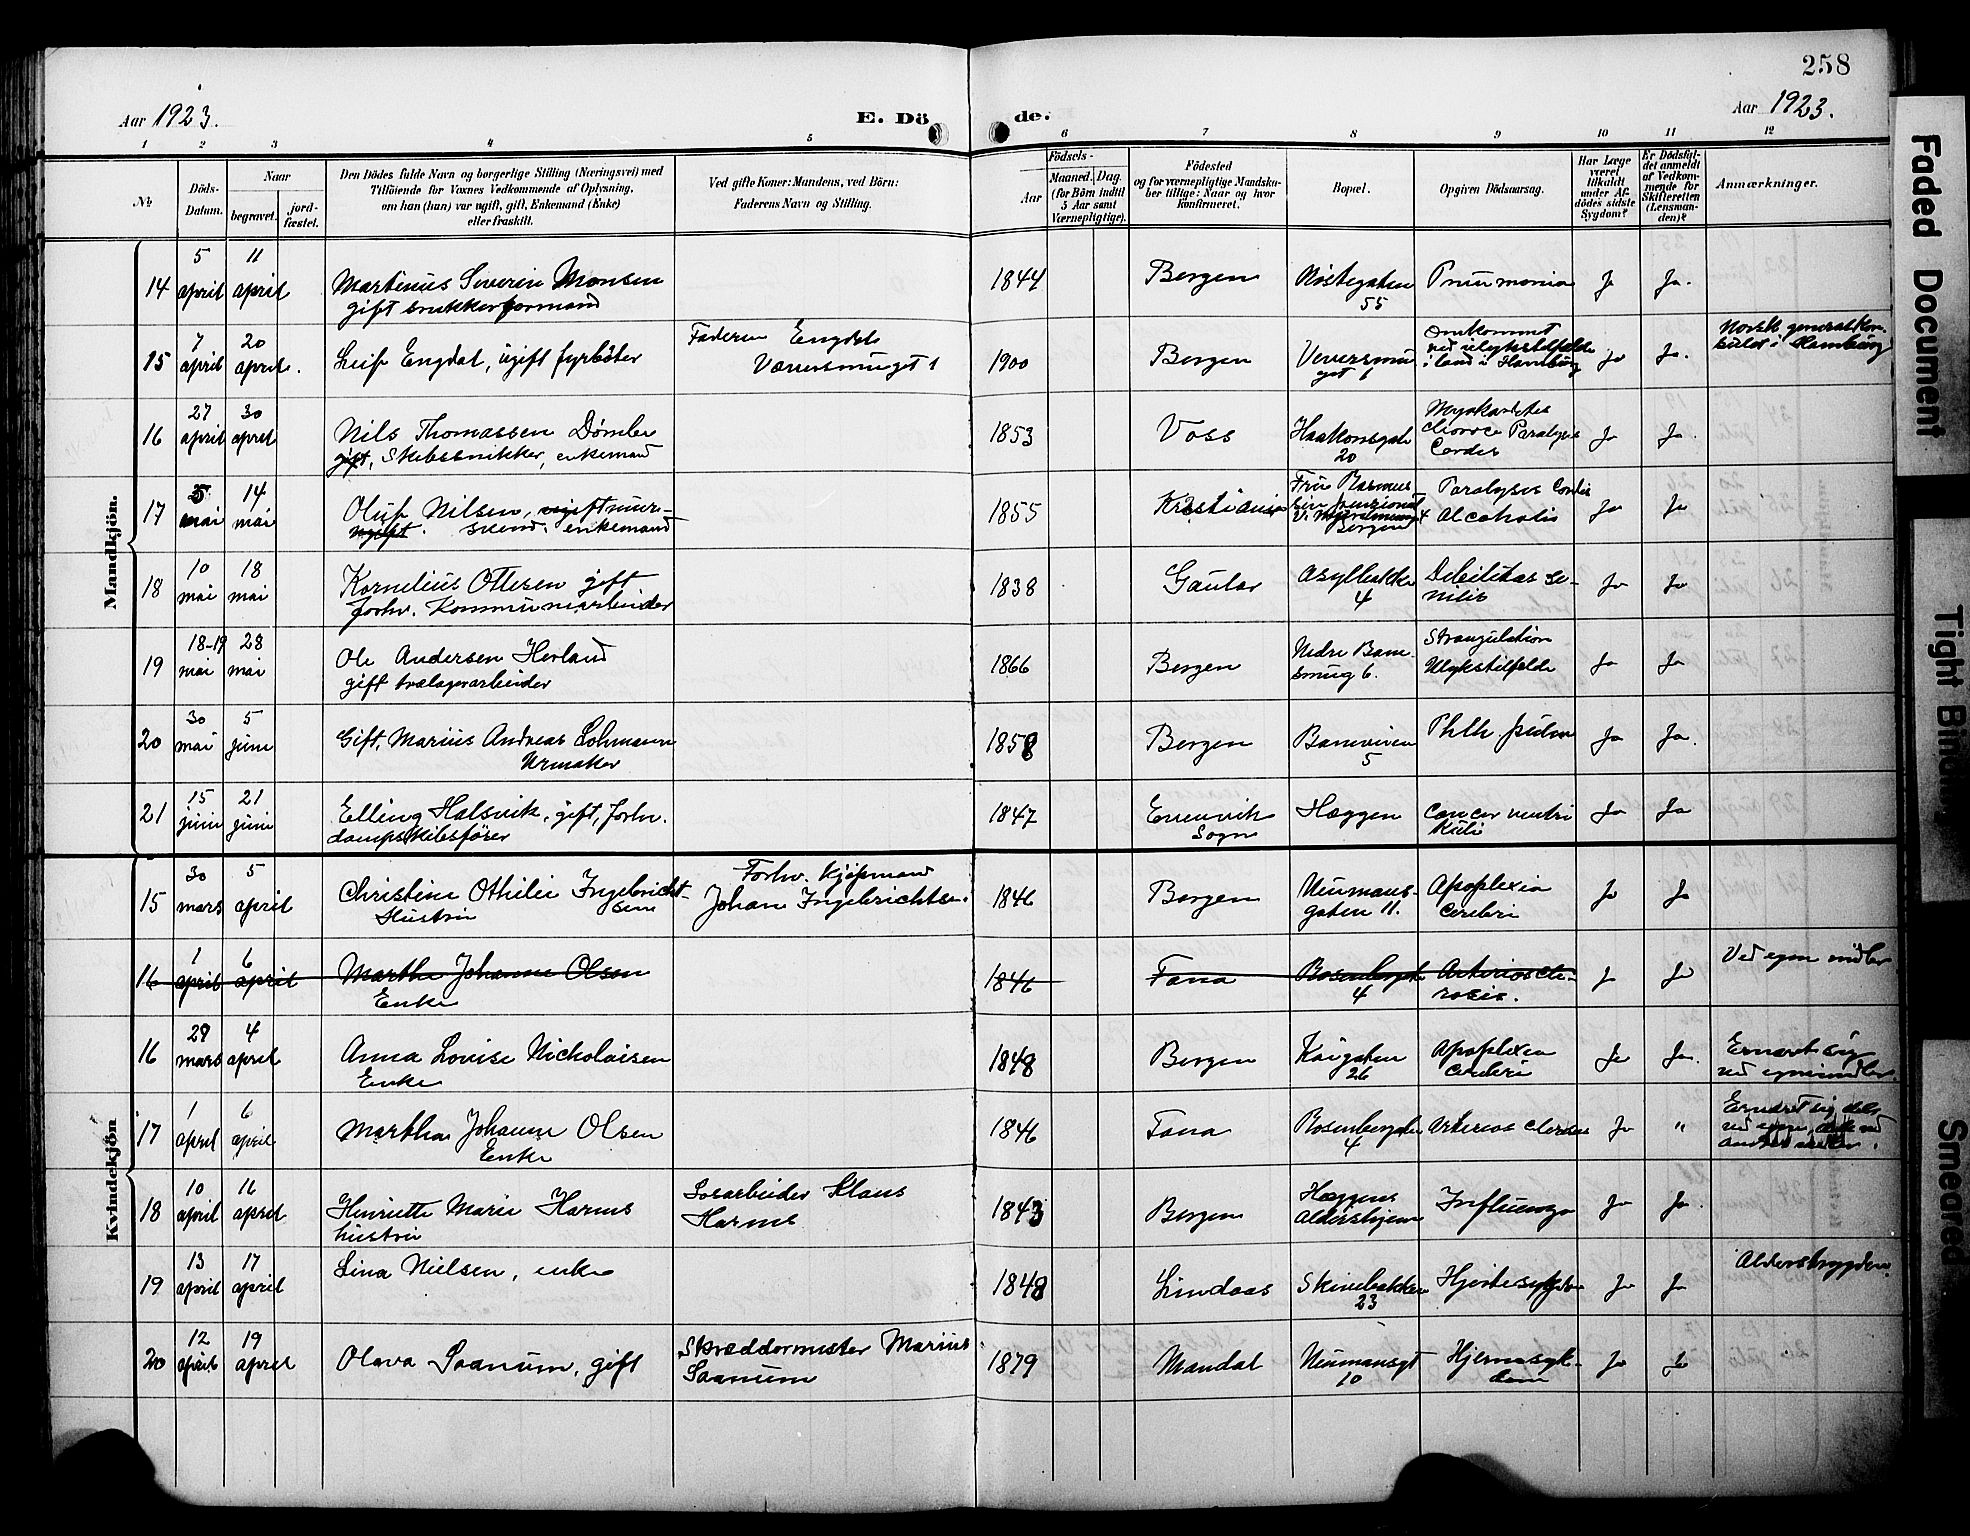 258
Aar 1923.
E. Dö
de.
Aar 1923.
1 2 3 4 5 6 7 8 9 10 11 12
No
Döds-Datum.
Naar
begravet.
jord-fæstet.
Den Dödes fulde Navn og borgerlige Stilling (Næringsvei) med
Tilföiende for Voxnes Vedkommende af Oplysning,
om han (hun) var ugift, gift, Enkemand (Enke)
eller fraskilt.
Ved gifte Koner: Mandens, ved Börn:
Faderens Navn og Stilling.
Födsels-
Aar
Maaned. Dag.
(for Börn indtil
5 Aar samt
Værnepligtige).
Födested
og for værnepligtige Mandska-
ber tillige: Naar og hvor
konfirmeret.
Bopæl.
Opgiven Dödsaarsag.
Har Læge
været
tilkaldt
under Af-
dödes sidste
Sygdom?
Er Dödsfal-
det anmeldt
af Vedkom-
mende for
Skifteretten
(Lensman-
den)?
Anmærkninger.
Mandkjön.
14 5 april 11 april Martinus Severin Monsen 1844 Bergen Nöstegaten 55 Pneumonia Ja Ja.
gift snekkerformand
15 7 april 20 april. Leif Engdal, ugift fyrböter Faderen Engdal Væversmuget 1 1900 Bergen Veversmuget 1 Omkommet ved ulykkestilfelde i land i Hamburg Ja Ja. Norsk generalkonsulat i Hamburg
16 27 april 30 april Nils Thomassen 1853 Voss Haakonsgate 20 Paralysis Cordis Ja Ja.
gift, Skibssnikker, enkemand
17 5 mai 14 mai Oluf Nilsen, ugift mur- 1855 Kristiania Fru Rasmussen pensionat Bergen Paralysis Cordis Alcoholis Ja Ja
ugift. svend. enkemand
18 10 mai 18 mai Kornelius Ottesen gift 1838 Gaular Asylbakken 4 Debilitas senilis Ja Ja
forhv. Kommunearbeider
19 18-19 mai 28 mai Ole Andersen Herland 1866 Bergen Nedre Banesmug 6. Strangulation Ulykstilfelde Ja Ja
gift trælagerarbeider
20 30 mai 5 juni Gift, Marius Andreas Lohmann 1858 Bergen Baneveien 5 Phth. pulm Ja Ja.
Urmaker
21 15 juni 21 juni Elling Halsvik, gift, forhv. 1847 Evenvik Sogn Hæggen Cancer ventrikuli Ja Ja
dampskibsförer
Kvindekjön
15 30 mars 5 april Christine Othilie Ingebrichtsen Forhv. Kjöpmand Johan Ingebrichtsen 1846 Bergen Neumansgaten 11. Apoplexia Cerebri Ja Ja
Hustru
16 1 april 6 april Martha Johanne Olsen 1846 Fana Rosenbergsgt 4 Arteriosclerosis. Ja Ja Ved egne midler
Enke
16 29 mars 4 april Anna Lovise Nicholaisen 1848 Bergen Kaigaten 26 Apoplexia Cerebri Ja Ja. Ernæret sig ved egne midler.
Enke
17 1 april 6 april Martha Johanne Olsen 1846 Fana Rosenbergsgaten 4 Arteriosclerose Ja " Ernæret sig dels ved egne, dels ved andres midler.
Enke
18 10 april 16 april Henriette Marie Harms Losarbeider Klaus Harms 1843 Bergen Hæggens Aldershjem Influenza Ja Ja.
hustru
19 13 april 17 april Lina Nielsen, enke 1848 Lindaas Skivebakken 23 Hjertesygdom Ja Ja Alderstrygden.
20 12 april 19 april Olava Saanum, gift Skræddermester Marius Saanum 1879 Mandal Neumansgt 10 Hjernesykdom Ja Ja
Faded Document
Tight Binding
Smeared